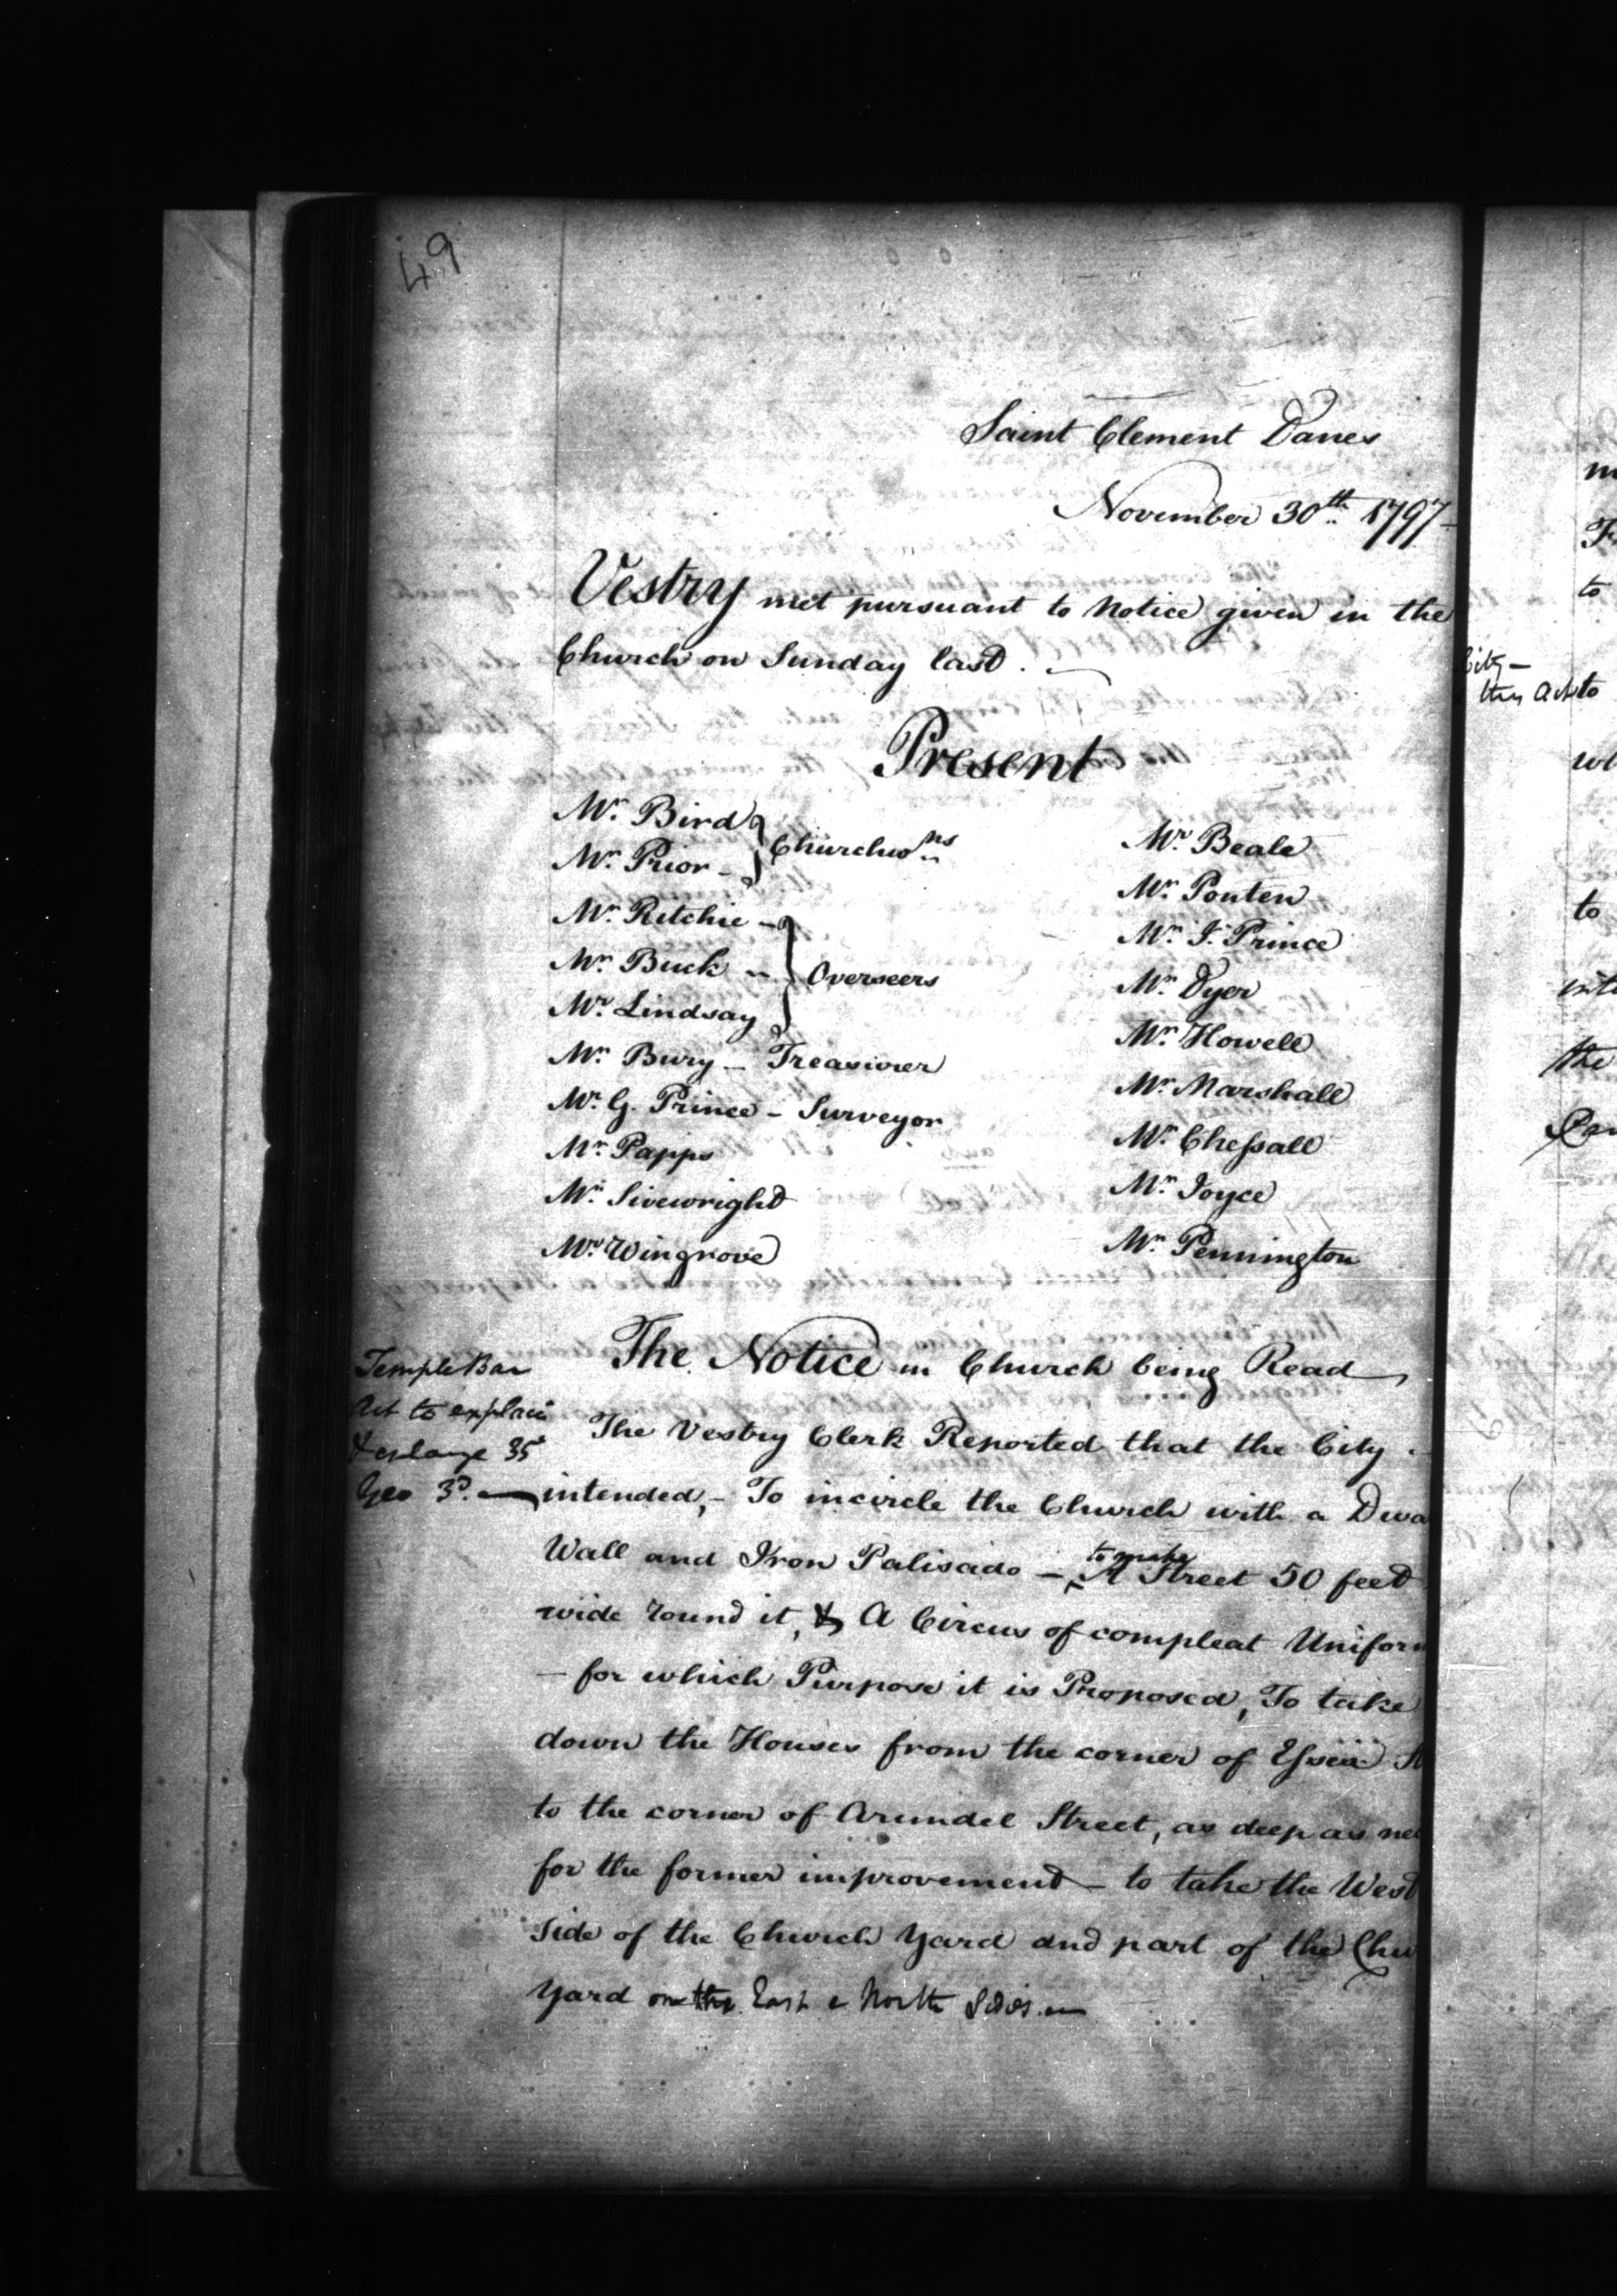 49
Saint Clement Danes
November 30th. 1797
Vestry met pursuant to Notice given in the
Church on Sunday last.
Present
Mr. Bird
Mr. Prior
Churchwns
Mr. Ritchie
Mr. Buck
Mr. Lindsay
Overseers
Mr. Bury - Treasurer
Mr. G. Prince - Surveyor
Mr. Papps
Mr. Sivewright
Mr. Wingrove
Mr. Beale
Mr. Ponten
Mr. J. Prince
Mr. Dyer
Mr. Howell
Mr. Marshall
Mr. Chessall
Mr. Joyce
Mr. Pennington
Temple Bar
Act to explain
& enlarge 35
Geo 3d. —
The Notice in Church being Read,
The Vestry Clerk Reported that the City
intended, - To incircle the Church with a Dwa
Wall and Iron Palisado - to make A Street 50 feet
wide round it, & A Circus of compleat Uniform
- for which Purpose it is Proposed, To take
down the Houses from the corner of Essex St
to the corner of Arundel Street, as deep as ne
for the former improvement - to take the West
Side of the Church Yard and part of the Chu
Yard on the East & North Sides. —
City -
this Act to
to
to
the